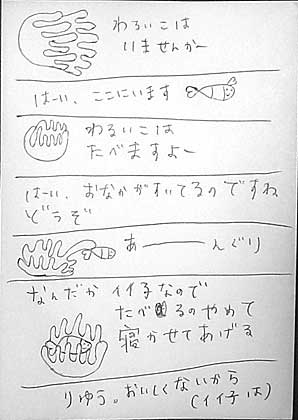 わるいこは
いませんかー
はーい、ここにいます
わるいこは
たべますよー
はーい、おなかがすいてるのですね
どうぞ
あーーーんぐり
なんだか イイ子なので
たべるのやめて
寝かせてあげる
りゆう。おいしくないから
(イイ子は)